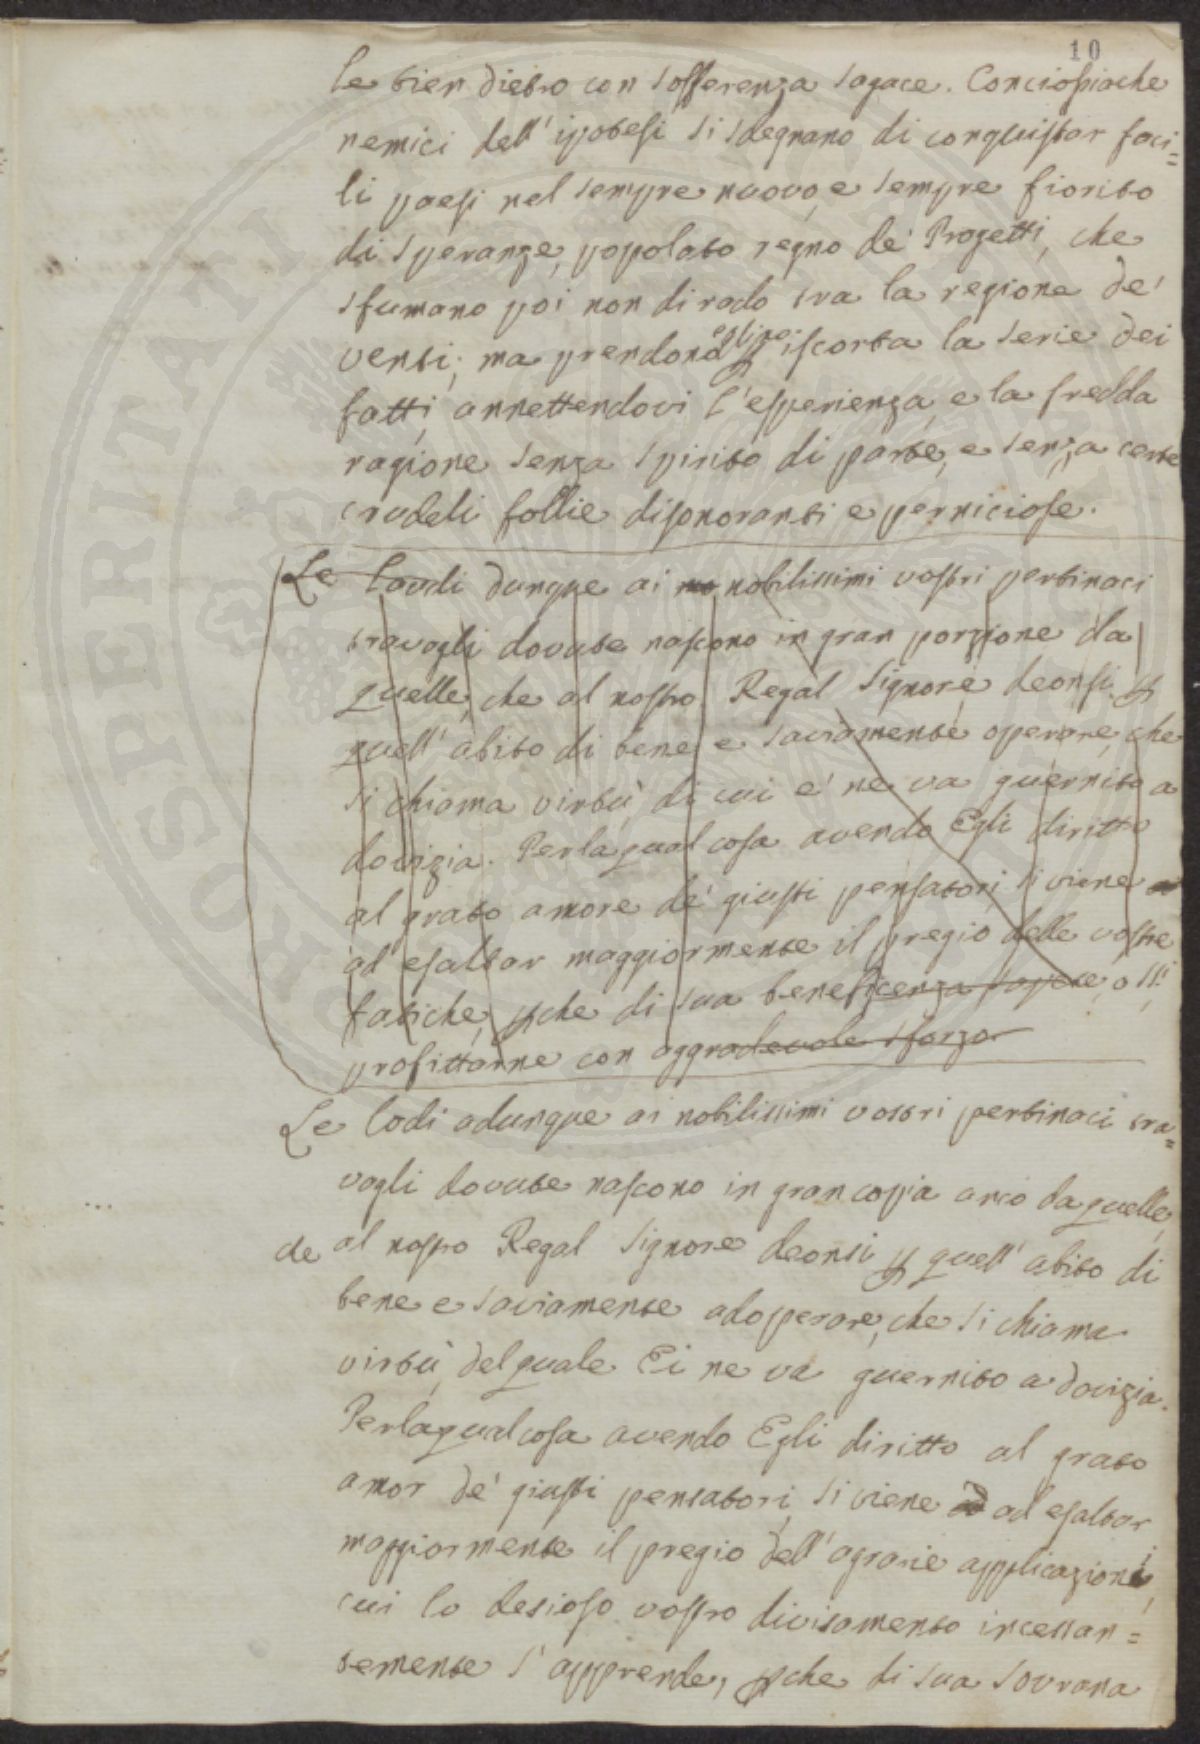 10
le tien dietro con sofferenza sagace. Conciosiache
nemici dell' ipotesi si sdegnano di conquistar faci=
li paesi nel sempre nuovo, e sempre fiorito
di speranze, popolato regno de' Progetti, che
sfumano poi non di rado tra la regione de'
venti; ma prendono eglino p iscorta la serie dei
fatti, annettendovi l'esperienza, e la fredda
ragione senza spirito di parte, e senza certe
crudeli follie disonoranti e perniciose.
Le laudi dunque ai nobilissimi vostri pertinaci
travagli dovute nascono in gran porzione da
quelle, che al nostro Regal Signore deonsi p
quell' abito di bene e saviamente operare, che
si chiama virtù, di cui e' ne va guernito a
dovizia. Perlaqualcosa avendo Egli diritto
al grato amore de' giusti pensatori, si viene
ad esaltar maggiormente il pregio delle vostre
fatiche, pche di sua beneficenza sapeste
profittarne con aggradevole sforzo
Le lodi adunque ai nobilissimi vostri pertinaci tra=
vagli dovute nascono in gran copia anco da quelle,
che al nostro Regal Signore deonsi p quell' abito di
bene e saviamente adoperare, che si chiama
virtù, del quale Ei ne va guernito a dovizia.
Perlaqualcosa avendo Egli diritto al grato
amor de' giusti pensatori, si viene ad esaltar
maggiormente il pregio dell' agrarie applicazioni,
cui lo desioso vostro divisamento incessan=
temente s' apprende, pche di sua sovrana
PROSPERITATI